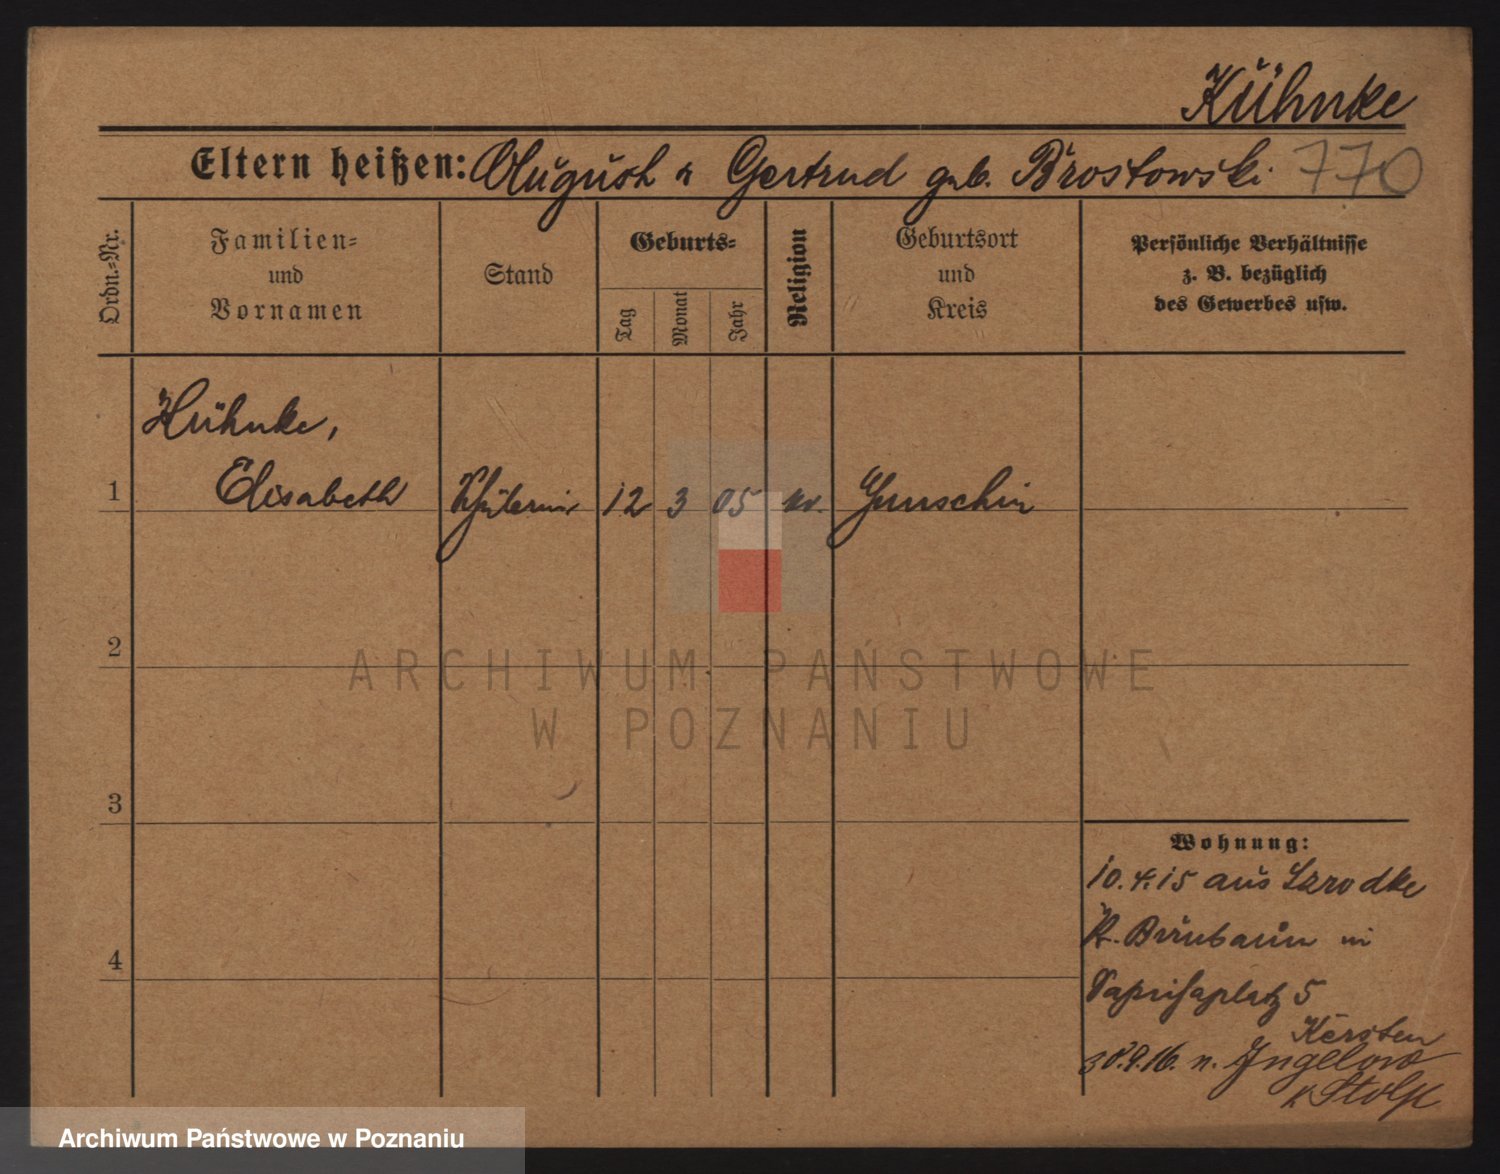 Kühnke
Eltern heißen: August u Gertrud geb. Brostowski 770
Ordn.=Nr.
Familien=
und
Vornamen
Stand
Geburts=
Tag
Monat
Jahr
Religion
Geburtsort
und
Kreis
Persönliche Verhältnisse
z. B. bezüglich
des Gewerbes usw.
Kühnke,
1 Elisabeth Schülerin 12 3 05 ev.
2
3
4
Wohnung:
10.4.15 aus Szrodke
K. Birnbaum in
5
Kersten
30.9.16. n. Ingelow
K Stolp
ARCHIWUM PAŃSTWOWE
W POZNANIU
Archiwum Państwowe w Poznaniu